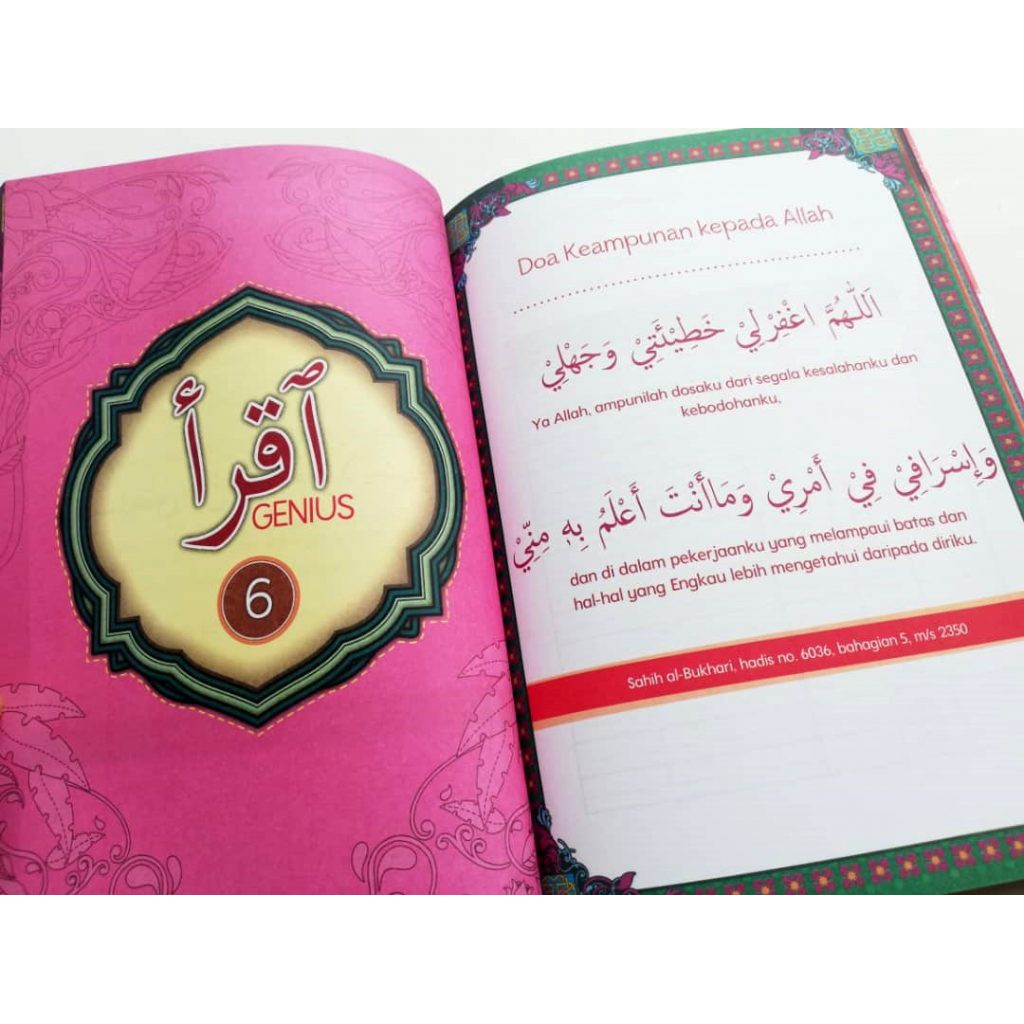 ٱقرأ
GENIUS
6
Doa Keampunan kepada Allah
اَللّٰهُمَّ اغْفِرْلِيْ خَطِيْئَتِيْ وَجَهْلِيْ
Ya Allah, ampunilah dosaku dari segala kesalahanku dan
kebodohanku,
وَإِسْرَافِيْ فِيْ أَمْرِيْ وَمَاأَنْتَ أَعْلَمُ بِهٖ مِنِّيْ
dan di dalam pekerjaanku yang melampaui batas dan
hal-hal yang Engkau lebih mengetahui daripada diriku.
Sahih al-Bukhari, hadis no. 6036, bahagian 5, m/s 2350